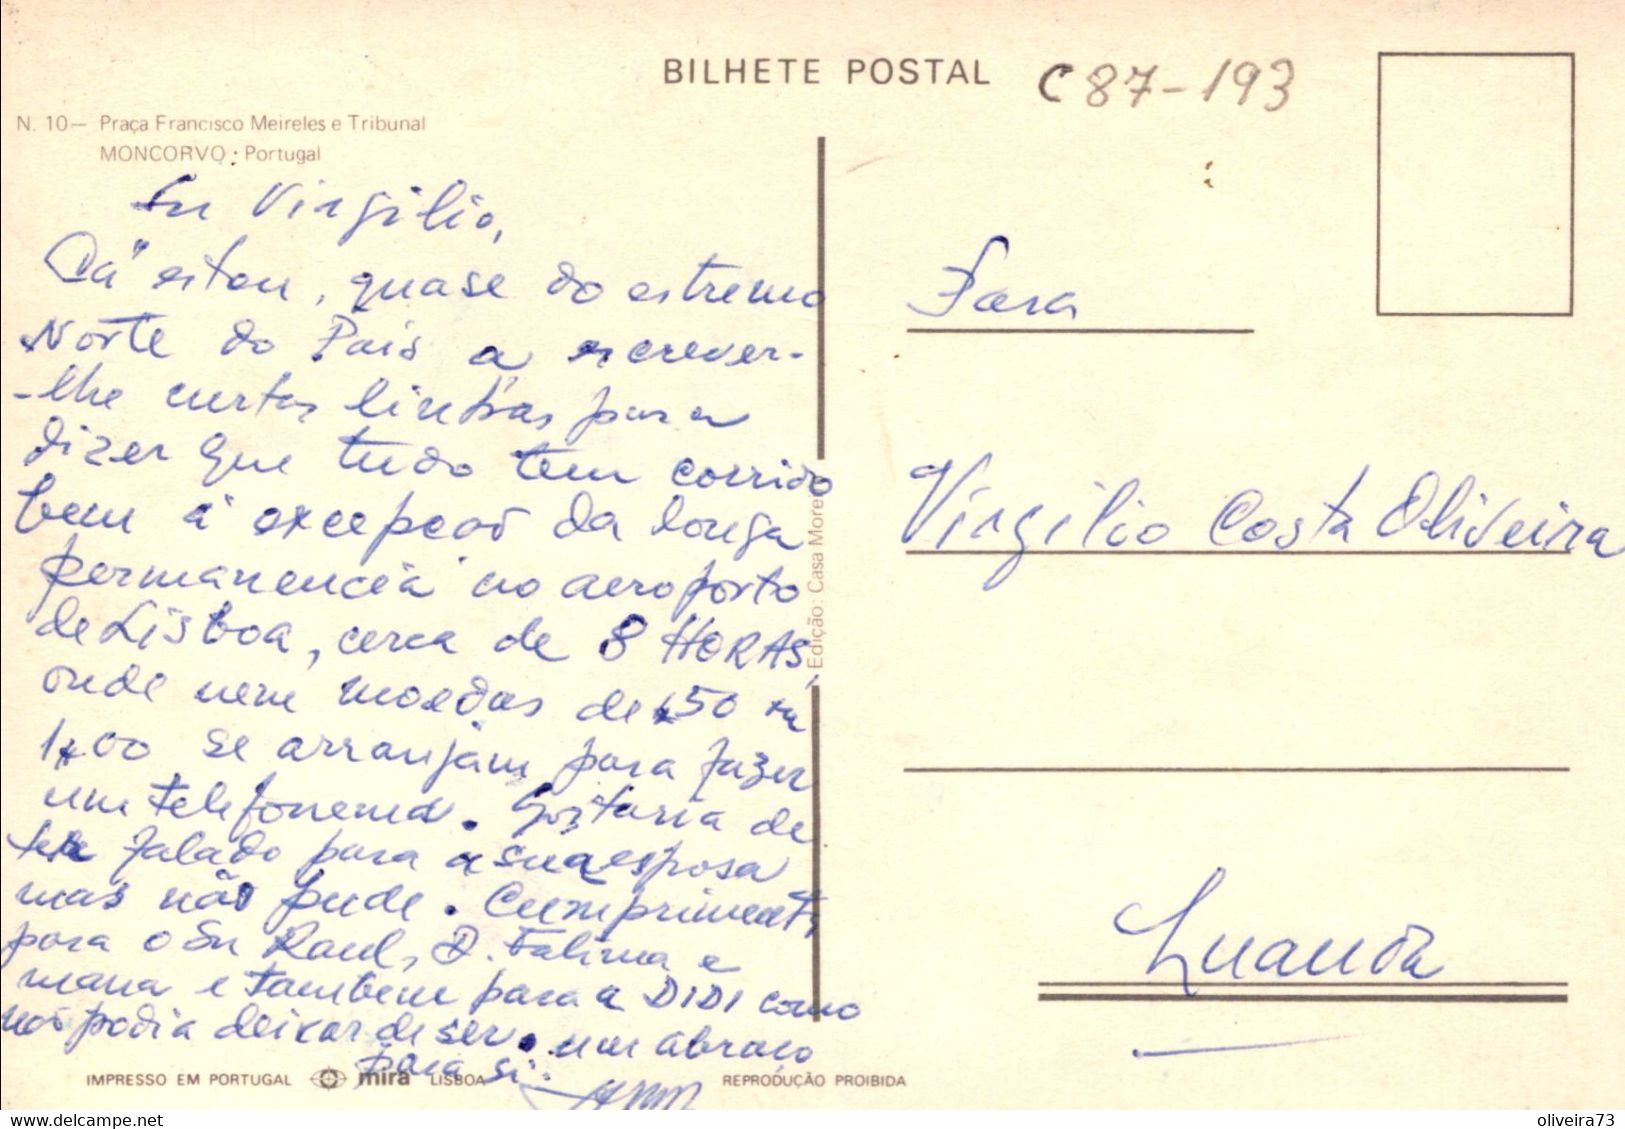 BILHETE POSTAL
C87-193
N. 10 — Praça Francisco Meireles e Tribunal
MONCORVO · Portugal
Sr Virgilio,
Cá estou, quase do estremo
Norte do País a escrever-
-lhe curtas linhas para
dizer que tudo tem corrido
bem á excepção da longa
permanencia no aeroporto
de Lisboa, cerca de 8 HORAS,
onde nem moedas de $50 ou
1$00 se arranjam para fazer
um telefonema. Gostaria de
ter falado para a sua esposa
mas não pude. Cumprimentos
para o Sr Raul, D. Fatima e
mana e tambem para a DIDI como
não podia deixar de ser. um abraço
para si.
Para
Virgilio Costa Oliveira
Luanda
Edição: Casa More
IMPRESSO EM PORTUGAL mira LISBOA REPRODUÇÃO PROIBIDA
www.delcampe.net
oliveira73